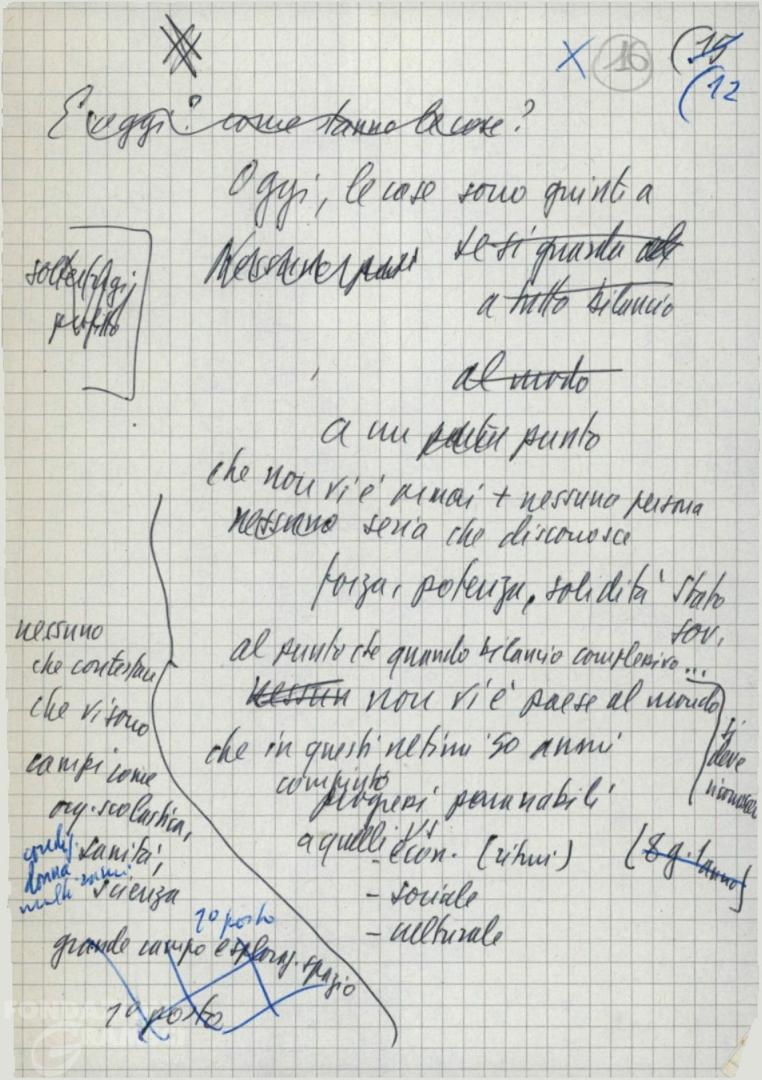 X 16 (15
(12
E oggi? come stanno le cose?
Oggi, le cose sono giunte a
Nessuno può se si guarda al
a tutto bilancio
soltanto oggi,
al modo
a un punto
che non vi è ormai + nessuna persona
nessuno seria che disconosce
forza, potenza, solidità Stato
sov.
al punto che quando bilancio complessivo...
nessun non vi è paese al mondo
che in questi ultimi 50 anni
compiuto
progressi paragonabili
a quelli
- econ. (ritmi) (8 g. 1 anno)
- sociale
- culturale
si
deve
riconoscere
nessuno
che contesta
che vi sono
campi come
org. scolastica,
sanità,
scienza
condiz.
donna
multi-rami
1° posto
grande campo esploraz. spazio
1° posto
FONDAZ
GRAMSCI